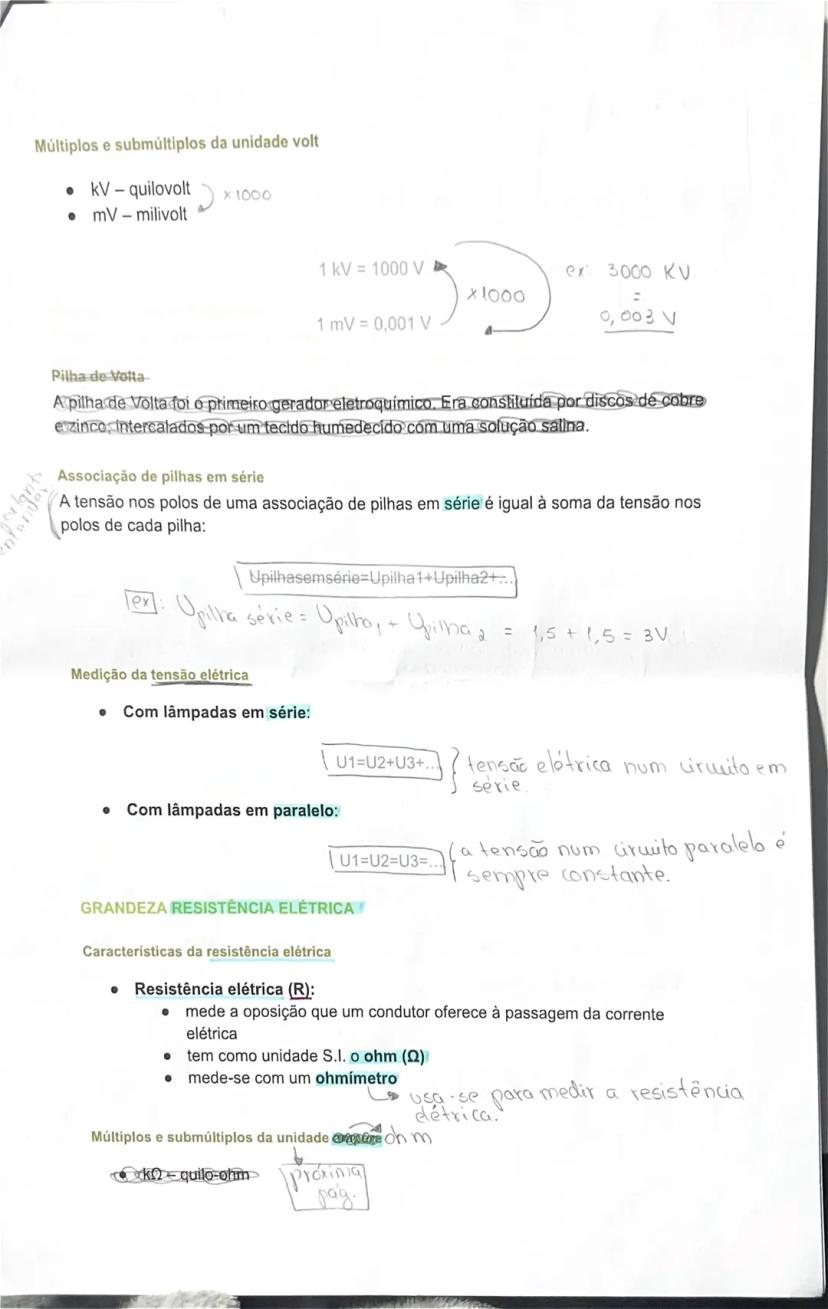 Múltiplos e submúltiplos da unidade volt
• kV – quilovolt
x 1000
• mV – milivolt
1 kV = 1000 V
ex: 3000 KV
x 1000
=
1 mV = 0,001 V
0,003 V
Pilha de Volta
A pilha de Volta foi o primeiro gerador eletroquímico. Era constituída por discos de cobre
e zinco, intercalados por um tecido humedecido com uma solução salina.
Associação de pilhas em série
A tensão nos polos de uma associação de pilhas em série é igual à soma da tensão nos
polos de cada pilha:
Upilhasemsérie=Upilha1+Upilha2+...
ex: Upilha série = Upilha1 + Upilha2 = 1,5 + 1,5 = 3V
Medição da tensão elétrica
• Com lâmpadas em série:
U1=U2+U3+... tensão elétrica num circuito em
série.
• Com lâmpadas em paralelo:
U1=U2=U3=... a tensão num circuito paralelo é
sempre constante.
GRANDEZA RESISTÊNCIA ELÉTRICA
Características da resistência elétrica
• Resistência elétrica (R):
• mede a oposição que um condutor oferece à passagem da corrente
elétrica
• tem como unidade S.I. o ohm (Ω)
• mede-se com um ohmímetro
usa-se para medir a resistência
elétrica.
Múltiplos e submúltiplos da unidade ohm
• kΩ – quilo-ohm
próxima
pág.